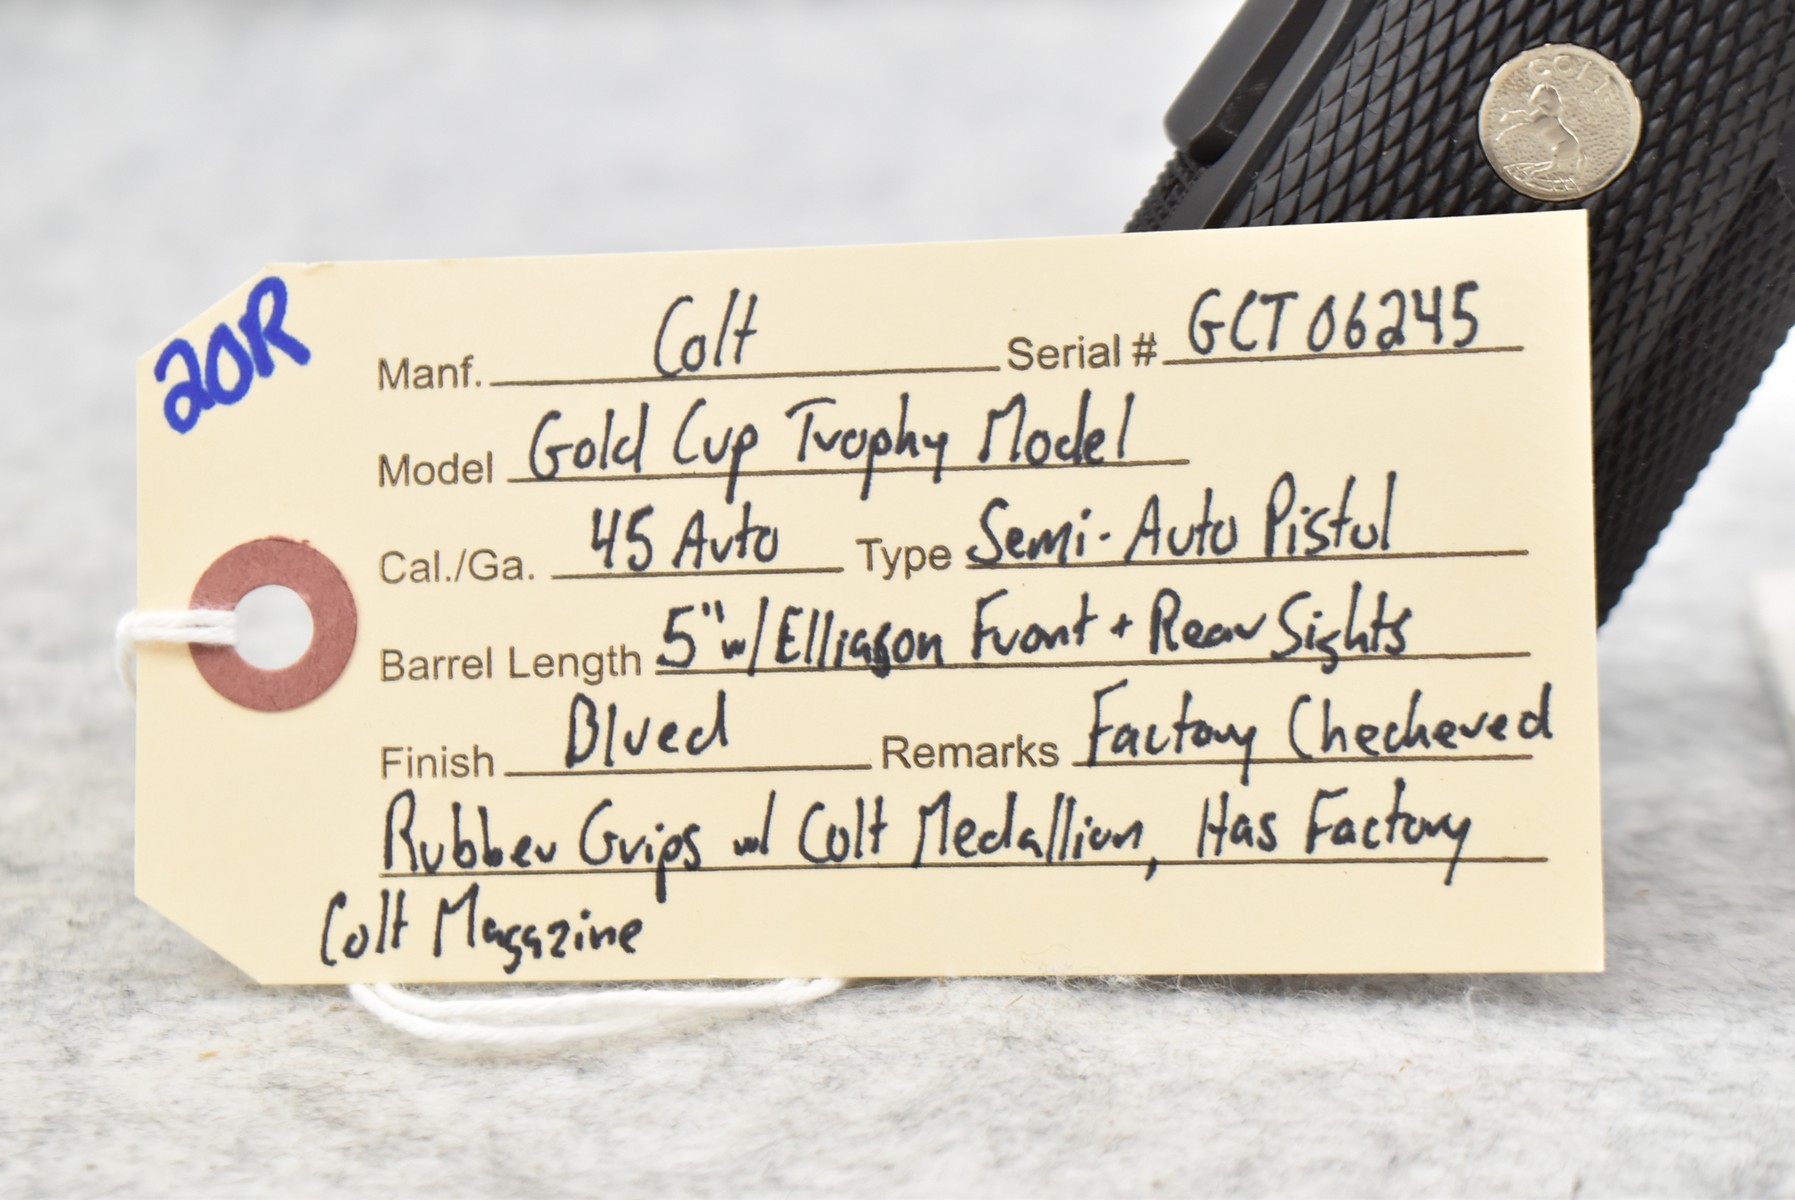 COLT
20R
Manf. Colt Serial # GCT06245
Model Gold Cup Trophy Model
Cal./Ga. 45 Auto Type Semi-Auto Pistol
Barrel Length 5" w/ Elliason Front + Rear Sights
Finish Blued Remarks Factory Checkered
Rubber Grips w/ Colt Medallion, Has Factory
Colt Magazine